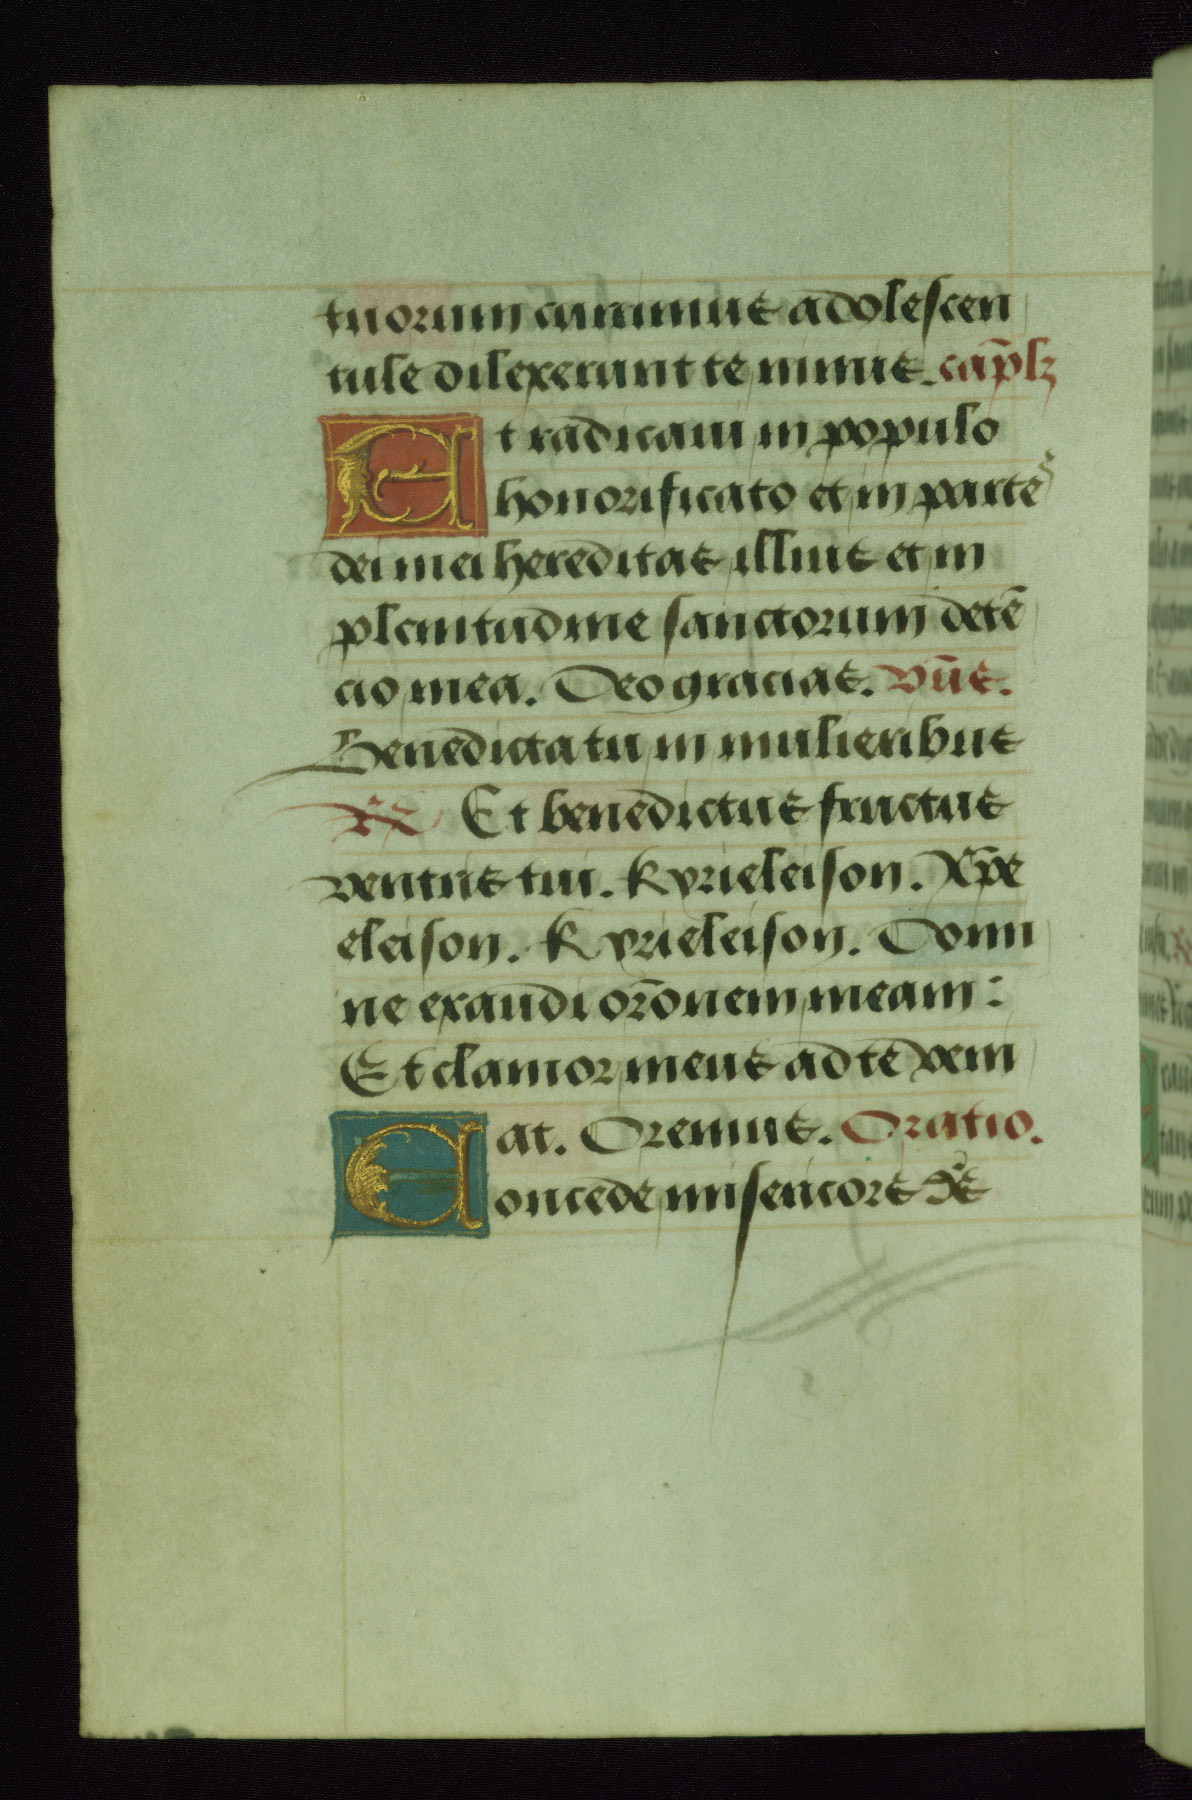 tuorum currimus adolescen
tule dilexerunt te nimis. cap̄lꝫ
Et radicaui in populo
honorificato et in parte͂
dei mei hereditas illius et in
plenitudine sanctorum detē
cio mea. Deo gracias. vūs.
Benedicta tu in mulieribus
℟ Et benedictus fructus
ventris tui. Kyrieleison. Xp̄e
eleison. Kyrieleison. Domi
ne exaudi orōnem meam:
Et clamor meus ad te veni
at. Oremus. Oratio.
Concede misericors ds̄